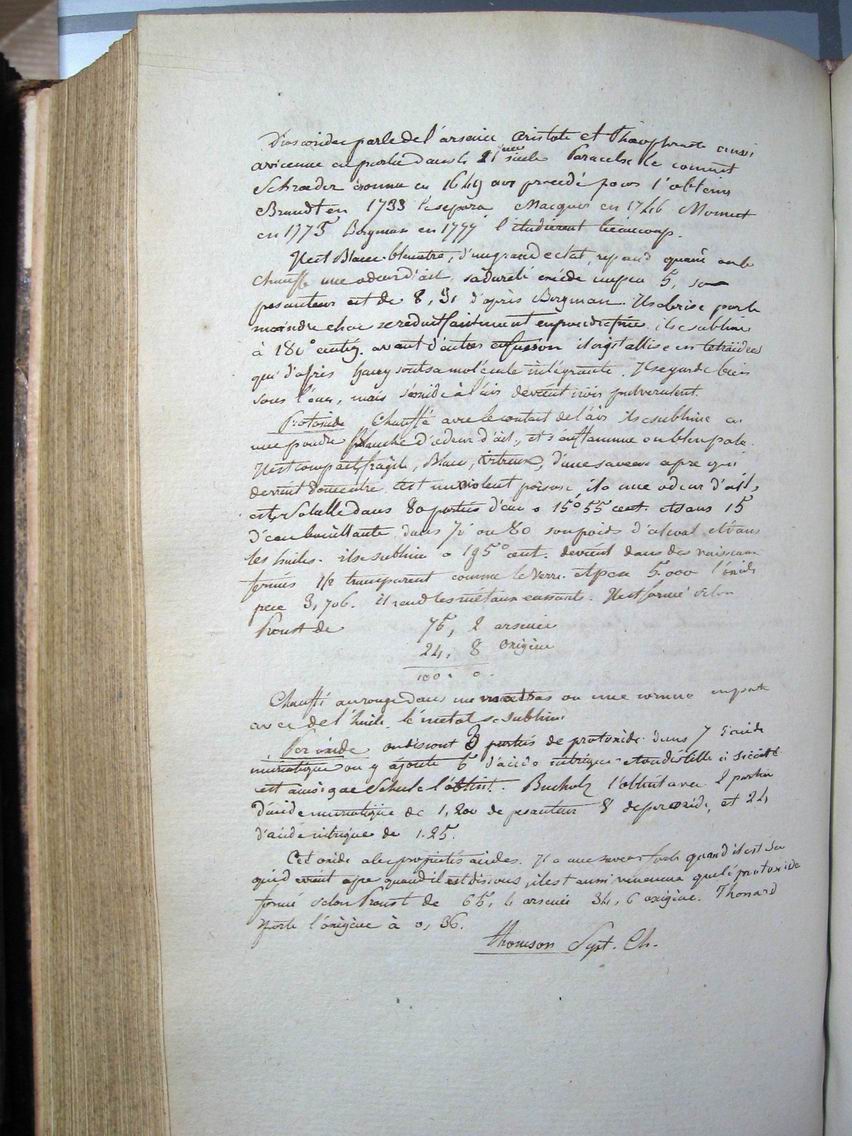 Dioscoride parle de l'arsenic Aristote et Théophraste ainsi
avicenne en partie dans le 11ième siècle Paracelse le connut
Schroeder donna en 1649 un procédé pour l'obtenir
Brandt en 1733 le sépara Macquer en 1746 Monnet
en 1773 Bergman en 1777 l'étudièrent beaucoup.
Il est Blanc bleuatre, d'un grand eclat repand quand on le
chauffe une odeur d'ail, sa dureté excède un peu 5, sa
pesanteur est de 8,31 d'après Bergman. Il se brise par le
moindre choc se reduit facilement en poudre fine, il se sublime
à 180° centig. avant d'entrer en fusion il crystallise en tetraèdres
qui d'après hauy sont sa molécule intégrante. Il se garde bien
sous l'eau, mais s'oxide à l'air devient noir pulverulent.
Protoxide Chauffé avec le contact de l'air il se sublime en
une poudre blanche d'odeur d'ail, et s'enflamme en bleu pale.
Il est compact, fragile, Blanc, vitreux, d'une saveur apre qui
devient douceatre. C'est un violent poison, il a une odeur d'ail,
est soluble dans 80 parties d'eau a 15°55 cent. et dans 15
d'eau bouillante, dans 70 ou 80 son poids d'alcool et dans
les huiles. il se sublime a 195° cent. devient dans des vaisseaux
fermés transparent comme le Verre. et pese 5.000 l'oxide
pese 3,706. il rend les métaux cassants. Il est formé selon
Proust de 75, 2 arsenic
24, 8 oxigène
100. 0.
Chauffé au rouge dans un matras ou une cornue en pate
avec de l'huile le metal se sublime
Peroxide on dissout 3 parties de protoxide dans 7 d'acide
muriatique on y ajoute 5 d'acide nitrique et on distille à siccité
c'est ainsi que Schele l'obtint. Bucholz l'obtint avec 2 parties
d'acide muriatique de 1,200 de pesanteur 8 de protoxide, et 24
d'acide nitrique de 1.25.
Cet oxide a les propriétés acides. Il a une saveur forte quand il est sec
qui devient apre quand il est dissous, il est aussi vénéneux que le protoxide
formé selon Proust de 65, 4 arsenic 34, 6 oxigène. Thenard
porte l'oxigène à 0, 36.
Thomson Syst. Ch.